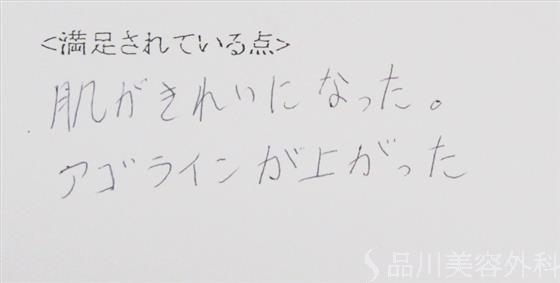 <満足されている点>
肌がきれいになった。
アゴラインが上がった
品川美容外科